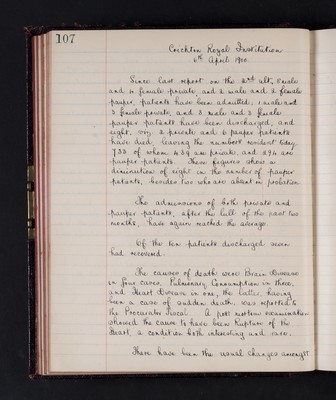 107
Crichton Royal Institution
6th April 1900.
Since last report on the 2nd ult, 8 male
and 4 female private, and 2 male and 2 female
pauper, patients have been admitted; 1 male and
3 female private, and 3 male and 3 female
pauper patients have been discharged, and
eight, viz, 2 private and 6 pauper patients
have died, leaving the numbers resident today
733 of whom 439 are private, and 294 are
pauper patients. These figures show a
diminution of eight in the number of pauper
patients, besides two who are absent on probation.
The admissions of both private and
pauper patients, after the lull of the past two
months, have again reached the average.
Of the ten patients discharged seven
had recovered.
The causes of death were Brain Disease
in four cases, Pulmonary Consumption in three,
and Heart Disease in one, the latter, having
been a case of sudden death, was reported to
the Procurator Fiscal. A post mortem examination
showed the cause to have been Rupture of the
Heart, a condition both interesting and rare.
There have been the usual changes amongst